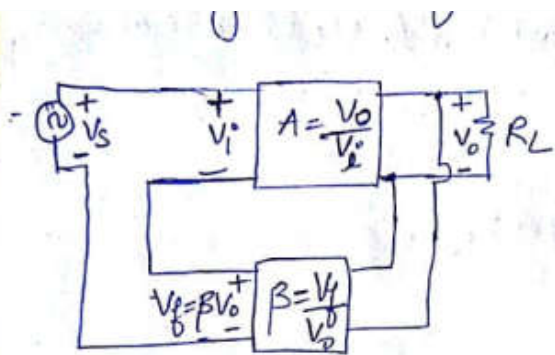 +
Vs
-
+
Vi
-
A = Vo/Vi
+
Vo
-
RL
Vf = βVo
+
-
β = Vf/Vo